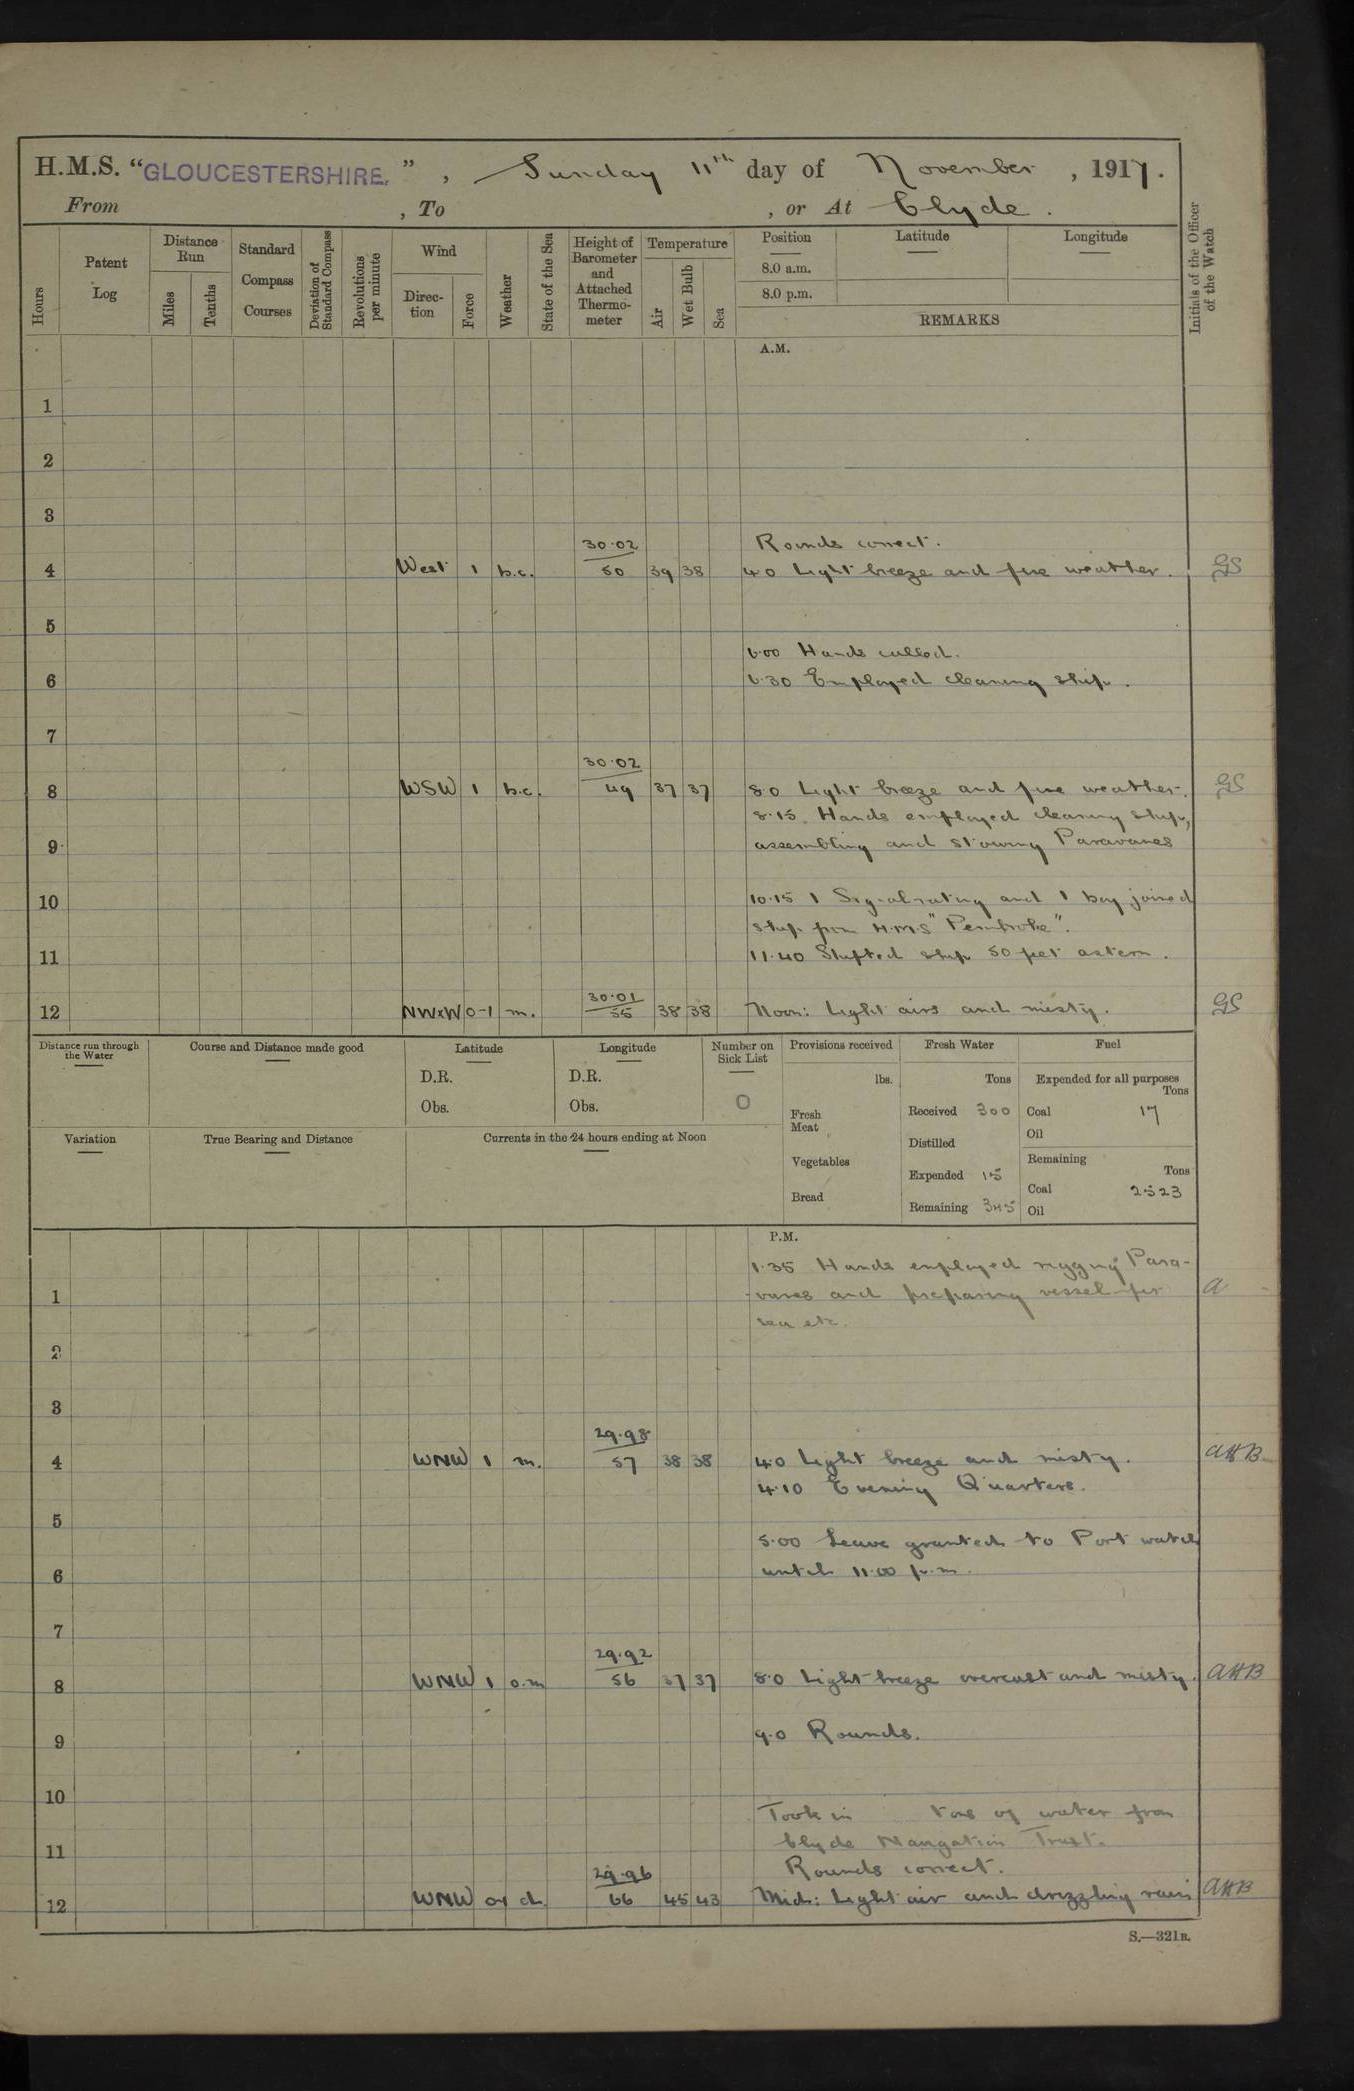 H.M.S. "GLOUCESTERSHIRE.", Sunday 11th day of November, 1917.
From , To , or At Clyde.
Hours
Patent Log
Distance Run
Miles
Tenths
Standard Compass Courses
Deviation of Standard Compass
Revolutions per minute
Wind
Direction
Force
Weather
State of the Sea
Height of Barometer and Attached Thermometer
Temperature
Air
Wet Bulb
Sea
Position
Latitude
Longitude
8.0 a.m.
8.0 p.m.
REMARKS
Initials of the Officer of the Watch
A.M.
1
2
3
30.02 Rounds correct.
4 West 1 b.c. 50 39 38 4.0 Light breeze and fine weather. GS
5
6.00 Hands called.
6 6.30 Employed cleaning ship.
7
30.02
8 WSW 1 b.c. 49 37 37 8.0 Light breeze and fine weather. GS
8.15. Hands employed cleaning ship,
9 assembling and stowing Paravanes
10 10.15 1 Signal rating and 1 boy joined
ship from H.M.S "Pembroke".
11 11.40 Shifted ship 50 feet astern.
30.01
12 NWxW 0-1 m. 55 38 38 Noon: Light airs and misty. GS
Distance run through the Water
Course and Distance made good
Latitude
D.R.
Obs.
Longitude
D.R.
Obs.
Number on Sick List
0
Provisions received
lbs.
Fresh Meat
Vegetables
Bread
Fresh Water
Tons
Received 300
Distilled
Expended 15
Remaining 345
Fuel
Expended for all purposes
Tons
Coal 17
Oil
Remaining
Tons
Coal 2523
Oil
Variation
True Bearing and Distance
Currents in the 24 hours ending at Noon
P.M.
1.35 Hands employed rigging Para-
1 vanes and preparing vessel for A
sea etc.
2
3
29.98
4 WNW 1 m. 57 38 38 4.0 Light breeze and misty. AHB
4.10 Evening Quarters.
5
5.00 Leave granted to Port watch
6 until 11.00 p.m.
7
29.92
8 WNW 1 o.m 56 37 37 8.0 Light breeze overcast and misty. AHB
9 9.0 Rounds.
10
Took in tons of water from
11 Clyde Navigation Trust.
29.96 Rounds correct.
12 WNW d. 66 45 43 Mid: Light air and drizzling rain AHB
S.—321B.